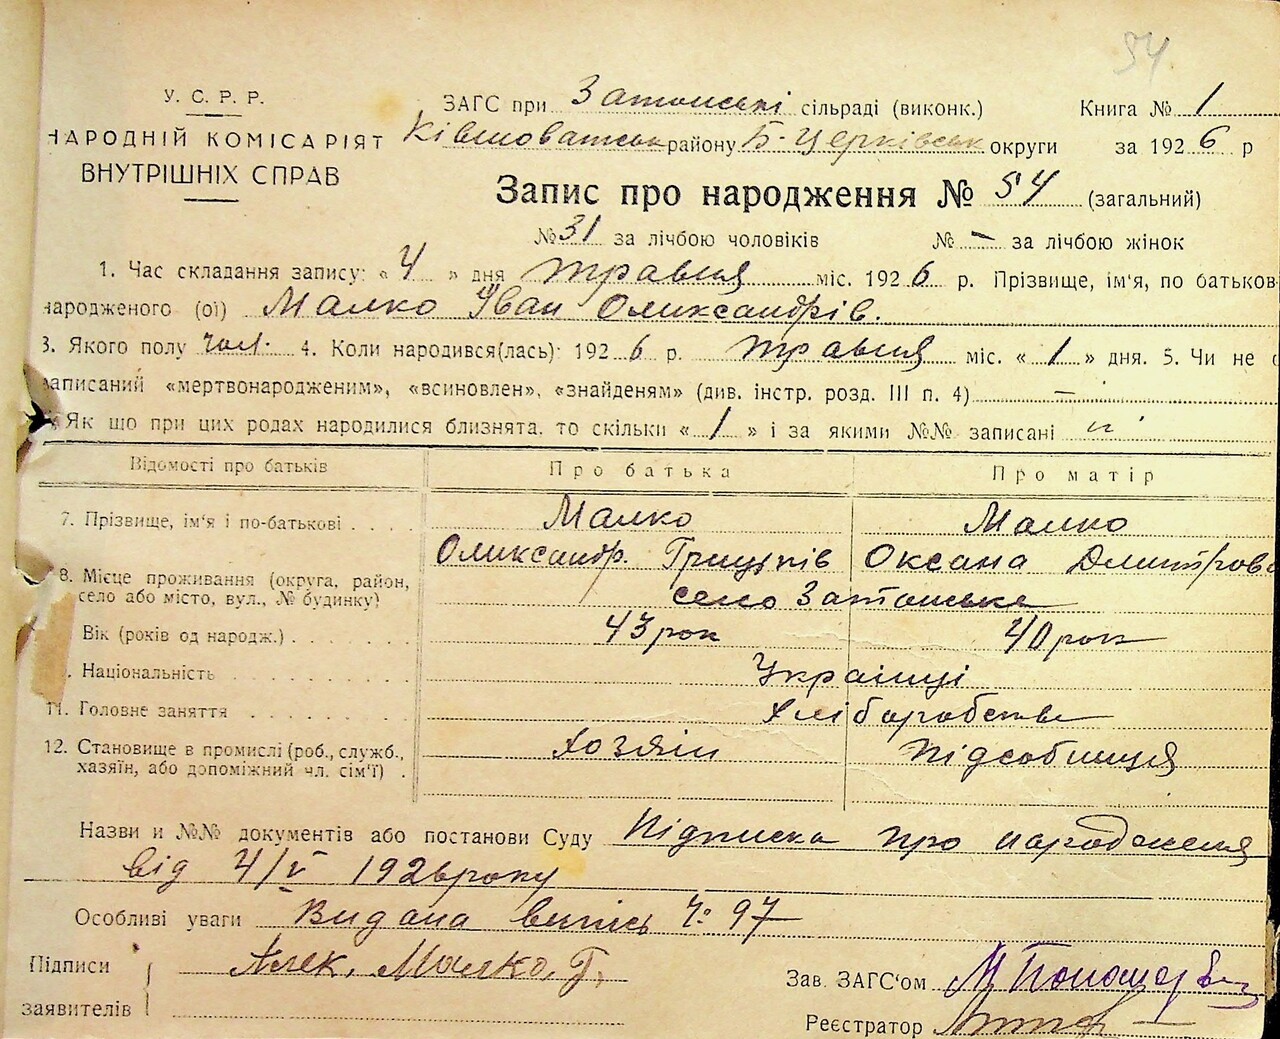 54
У. С. Р. Р.
НАРОДНІЙ КОМІСАРІЯТ
ВНУТРІШНІХ СПРАВ
ЗАГС при Затонські сільраді (виконк.) Книга № 1
Ківшоватськ району Б-Церківськ округи за 1926 р
Запис про народження № 54 (загальний)
№ 31 за лічбою чоловіків № — за лічбою жінок
1. Час складання запису: « 4 » дня травня міс. 1926 р. Прізвище, ім'я, по батьков
народженого (ої) Малко Іван Олександрів.
3. Якого полу чол. 4. Коли народився(лась): 1926 р. травня міс. « 1 » дня. 5. Чи не
записаний «мертвонародженим», «всиновлен», «знайденям» (див. інстр. розд. III п. 4) —
Як що при цих родах народилися близнята, то скільки « 1 » і за якими №№ записані
Відомості про батьків Про батька Про матір
7. Прізвище, ім'я і по-батькові Малко Малко
Олександр. Грицьків Оксана Дмитрова
8. Місце проживання (округа, район,
село або місто, вул., № будинку) село Затонське
Вік (років од народж.) 43 рок 40 рок
. Національність Українці
11. Головне заняття Хліборобство
12. Становище в промислі (роб., служб.,
хазяїн, або допоміжний чл. сім'ї) Хозяїн Підсобниця
Назви и №№ документів або постанови Суду Підписка про народження
від 4/V 1926 року
Особливі уваги Видана випись Ч: 97
Підписи
заявителів Алек. Малко, Г.
Зав. ЗАГС'ом
Реєстратор